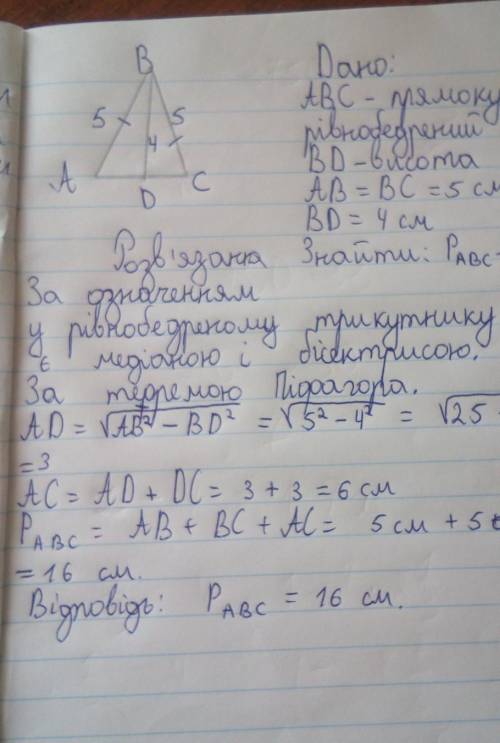 B
5 5
4
A C
D
Дано:
ABC - прямоку
рівнобедрений
BD - висота
AB = BC = 5 см
BD = 4 см
Розв'язання Знайти: P_ABC -
За означенням
у рівнобедреному трикутнику
є медіаною і бісектрисою.
За теоремою Піфагора.
AD = √AB² - BD² = √5² - 4² = √25
= 3
AC = AD + DC = 3 + 3 = 6 см
P_ABC = AB + BC + AC = 5 см + 5
= 16 см.
Відповідь: P_ABC = 16 см.